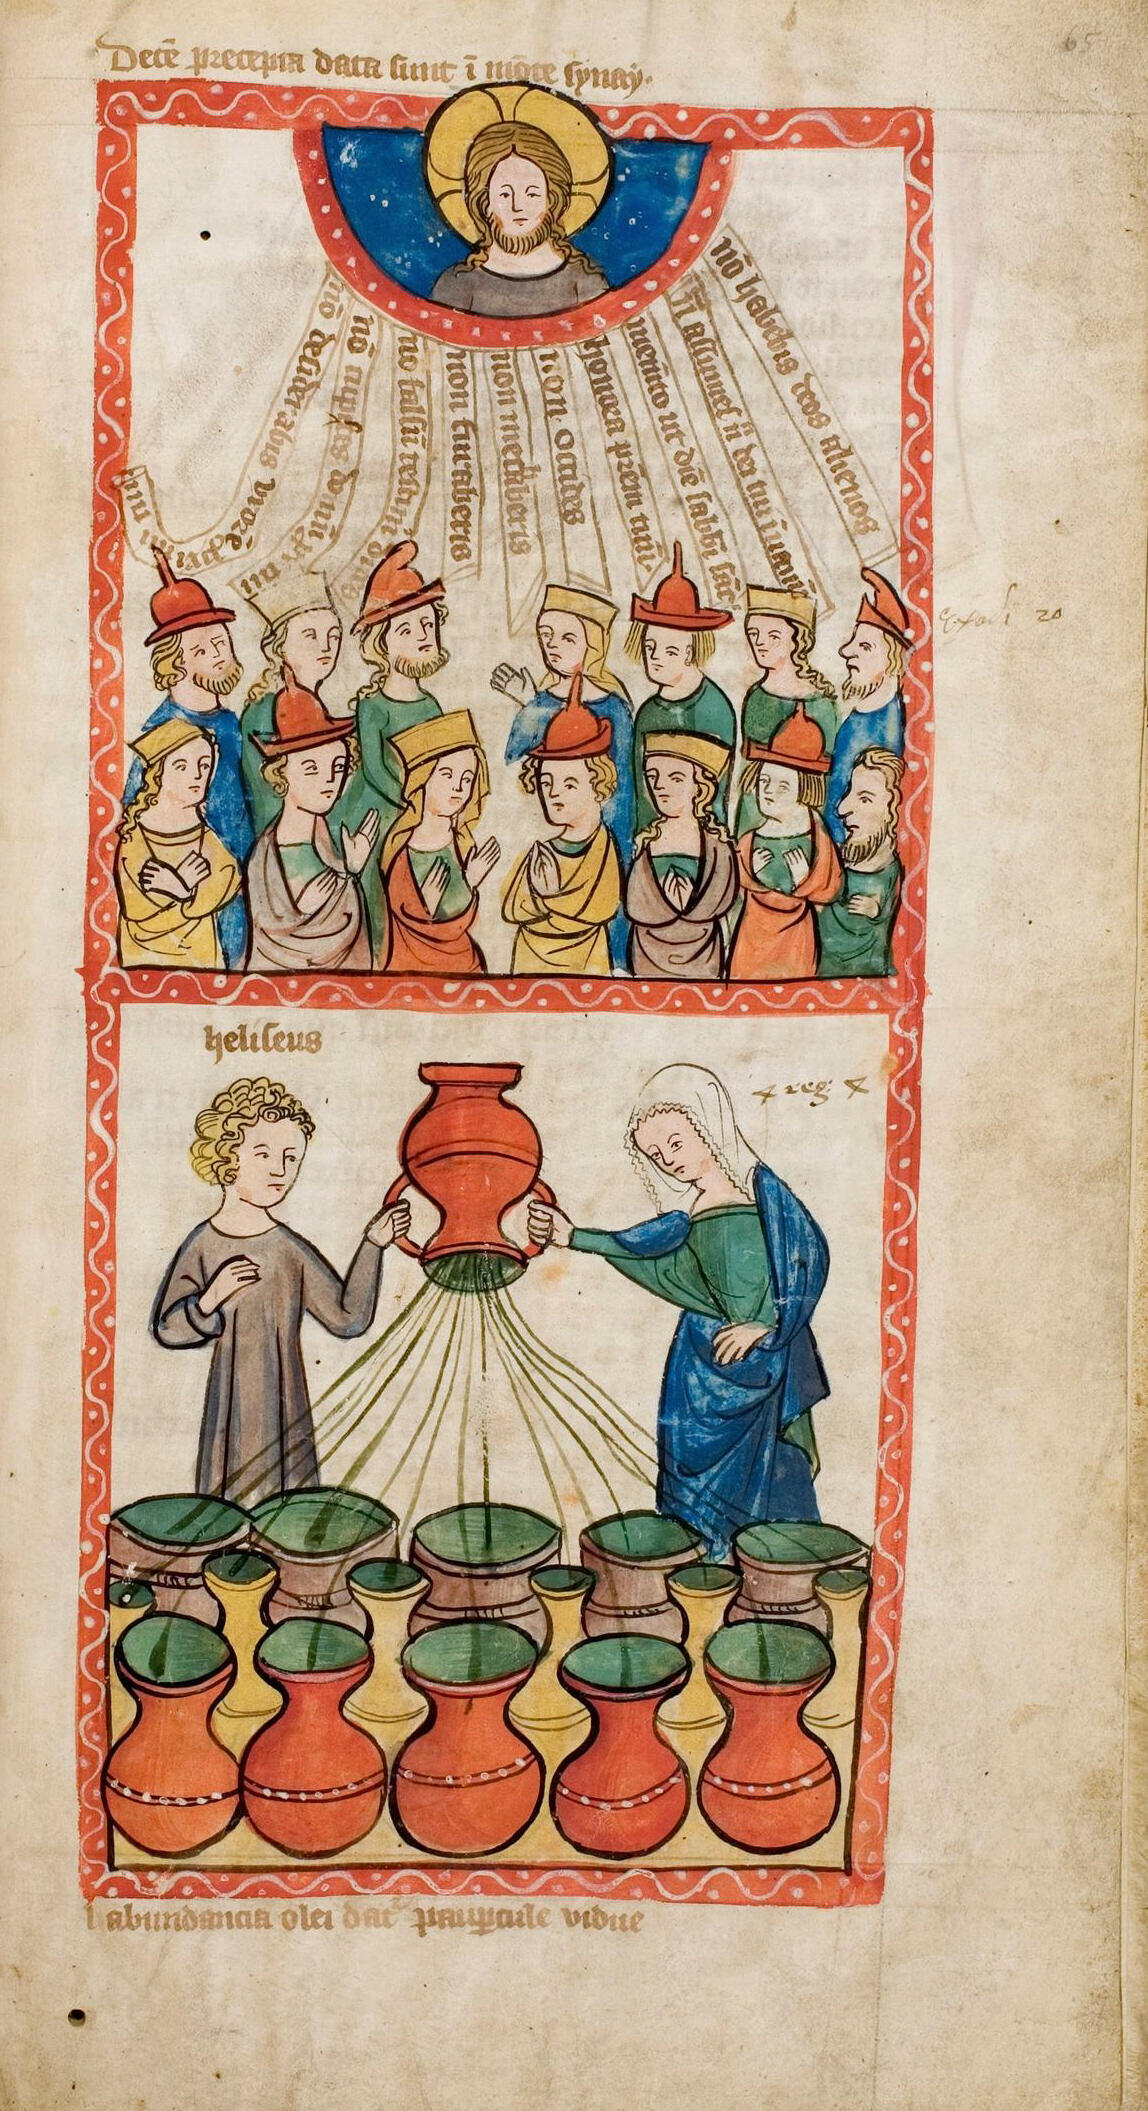 65
Decē precepta data sunt ī mōte synay.
nō habebis deos alienos
nō assumes n̄ dei tui ī uanū
memēto ut diē sabbī sāc
honora prēm tuū
non occides
non mechaberis
non furaberis
nō falsū testim̄oniū
nō cupies domū
pxī tui
nō desiderabis vxorē
pxī tui
Exodi 20
heliseus
4 reg 4
habundancia olei dat paupercule vidue